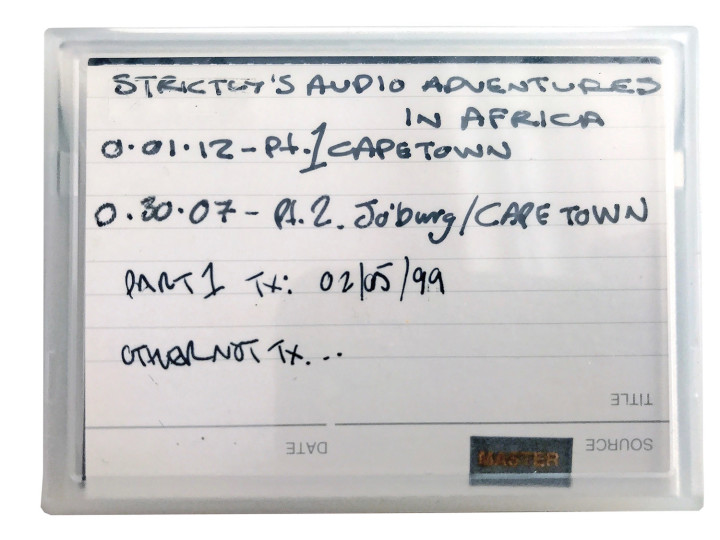 STRICTLY'S AUDIO ADVENTURES
IN AFRICA
0.01.12 - Pt. 1 CAPETOWN
0.30.07 - Pt. 2. Jo'burg/CAPE TOWN
PART 1 TX: 02/05/99
OTHER NOT TX...
TITLE
DATE
SOURCE
MASTER